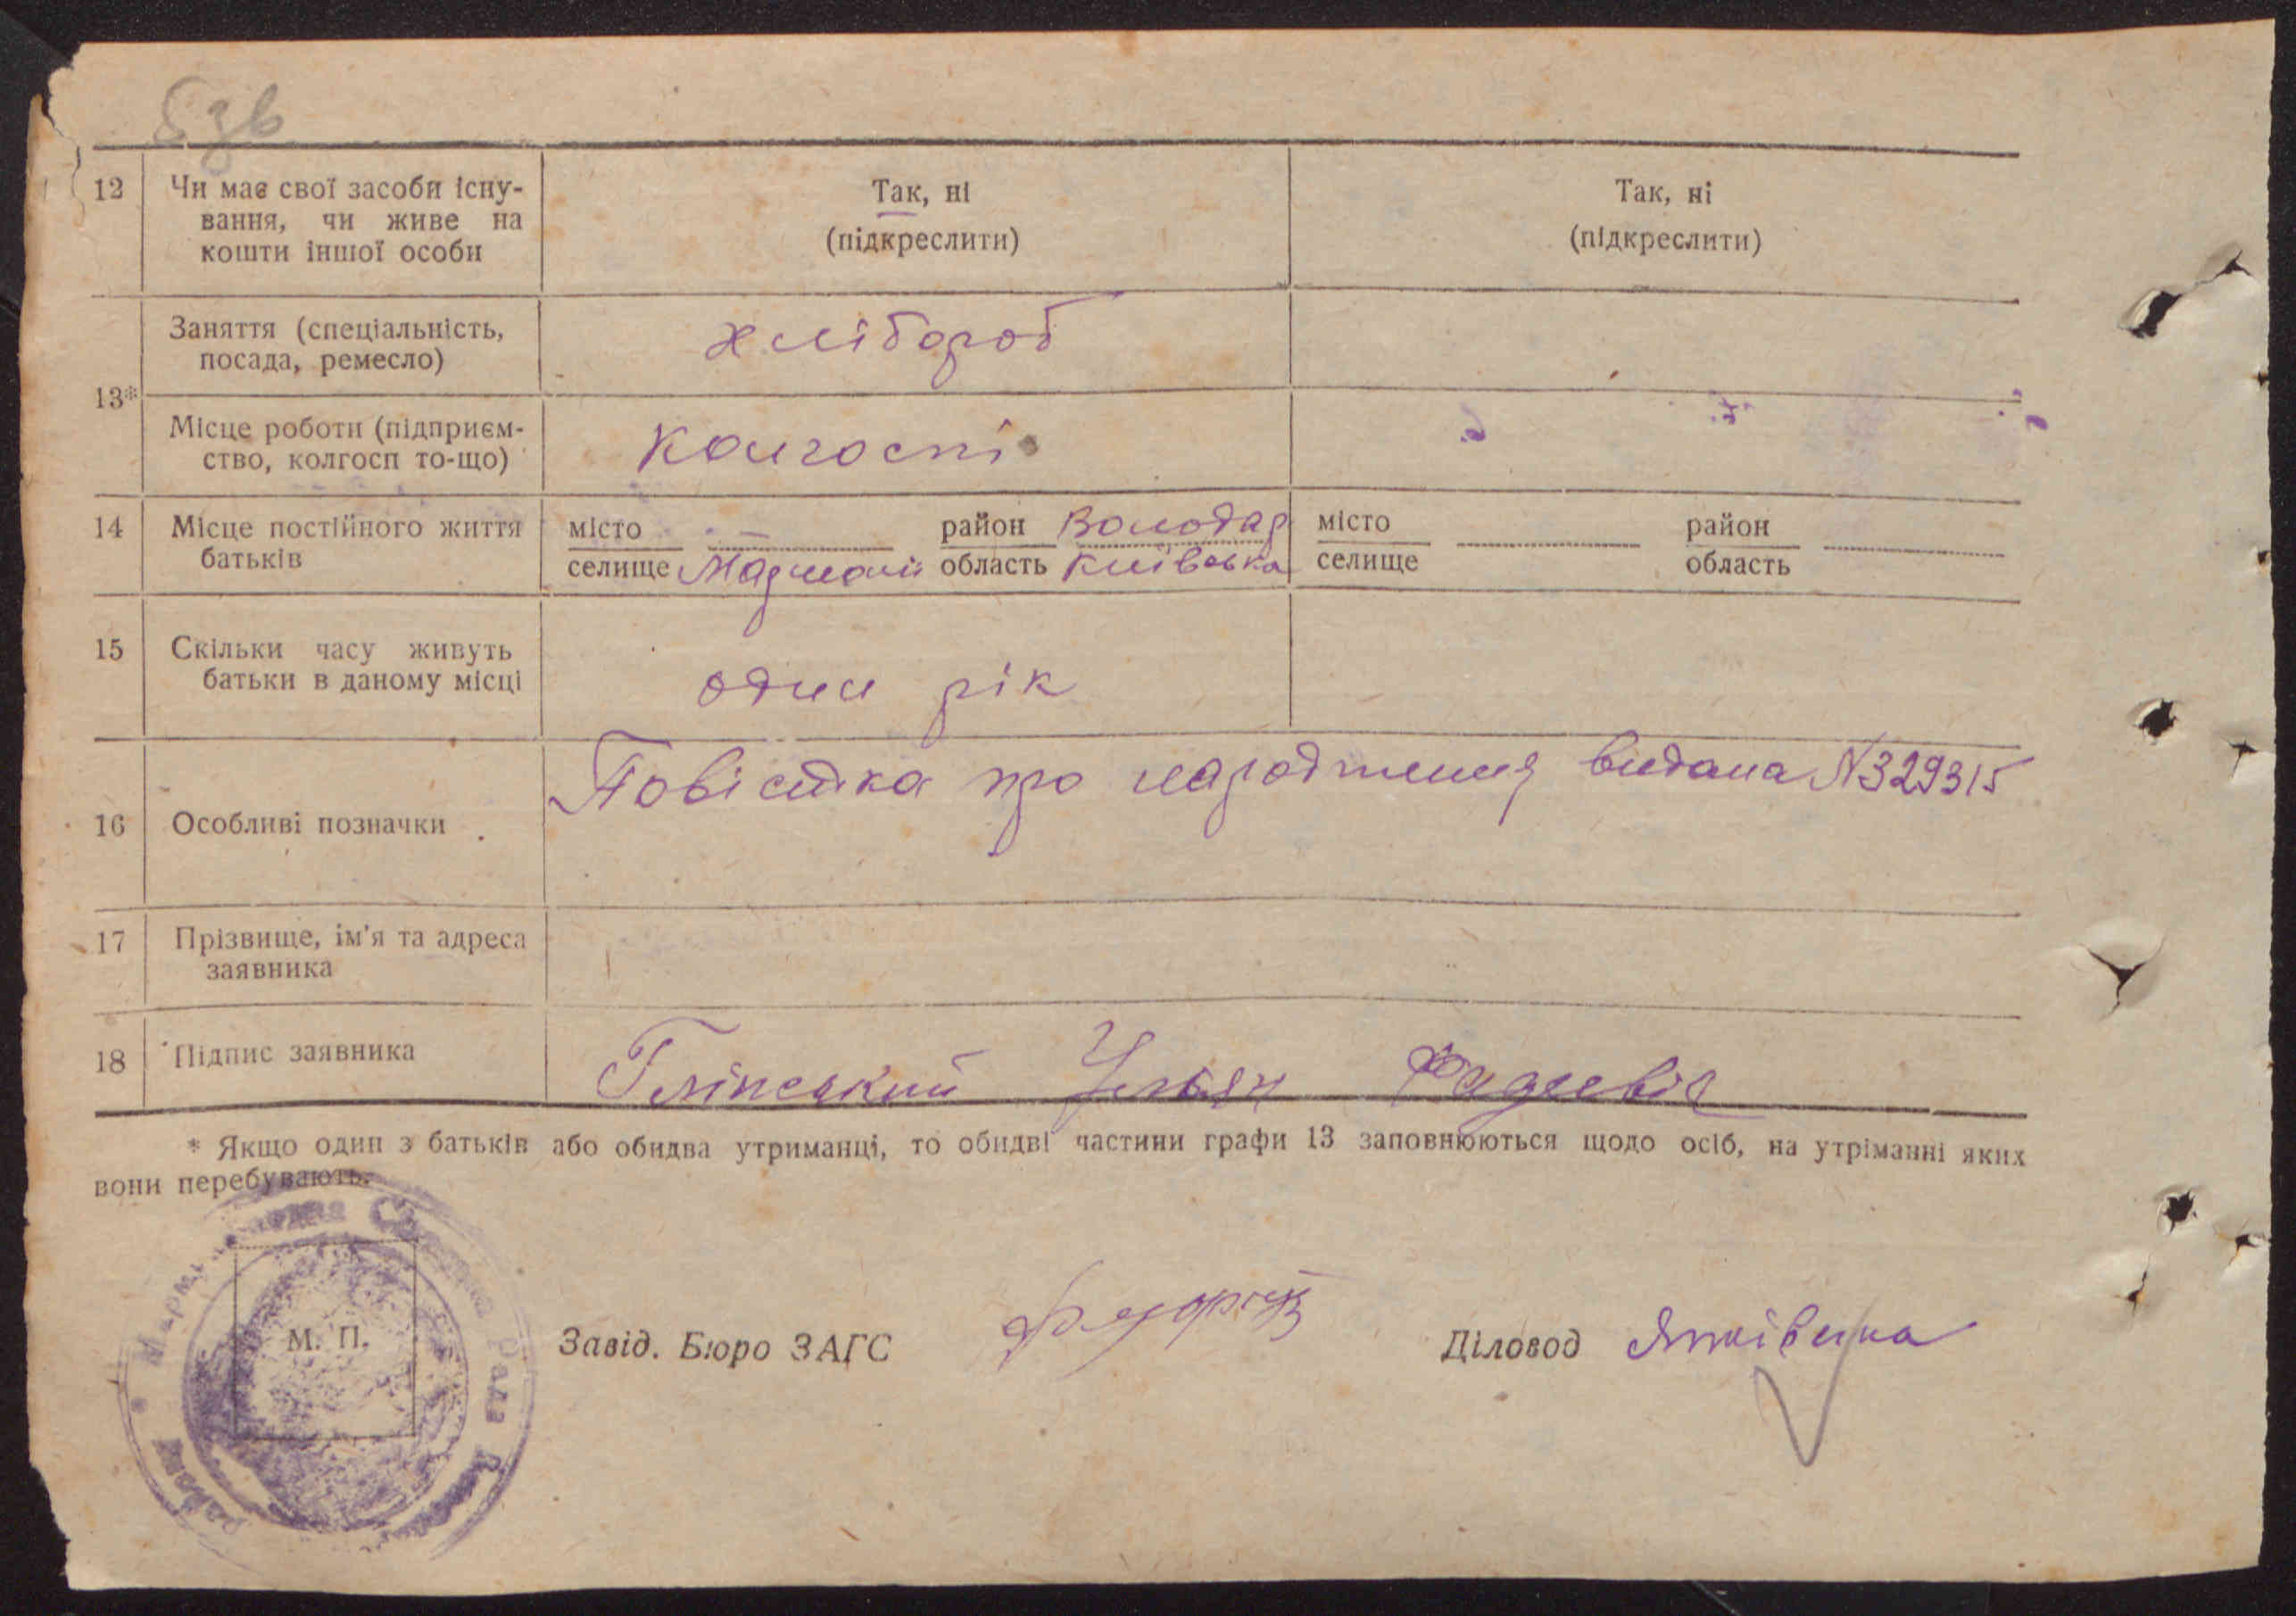 5зв
12 Чи має свої засоби існу- Так, ні Так, ні
вання, чи живе на (підкреслити) (підкреслити)
кошти іншої особи
Заняття (спеціальність, хлібороб
посада, ремесло)
13*
Місце роботи (підприєм- колгоспі
ство, колгосп то-що)
14 Місце постійного життя місто — район Володар місто район
батьків селище область Київська селище область
15 Скільки часу живуть
батьки в даному місці один рік
Повістка про народження видана N329315
16 Особливі позначки
17 Прізвище, ім'я та адреса
заявника
18 Підпис заявника Глінський Ульян Фадеевіч
* Якщо один з батьків або обидва утриманці, то обидві частини графи 13 заповнюються щодо осіб, на утріманні яких
вони перебувають.
Рада
М. П.
Завід. Бюро ЗАГС Діловод